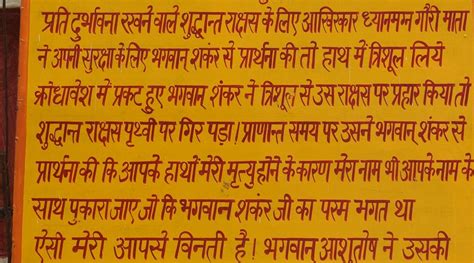 प्रति दुर्भावना रखने वाले शुद्धान्त राक्षस के लिए आखिरकार ध्यानमग्न गौरी माता
ने अपनी सुरक्षा के लिए भगवान् शंकर से प्रार्थना की तो हाथ में त्रिशूल लिये
क्रोधावेश में प्रकट हुए भगवान् शंकर ने त्रिशूल से उस राक्षस पर प्रहार किया तो
शुद्धान्त राक्षस पृथ्वी पर गिर पड़ा। प्राणान्त समय पर उसने भगवान् शंकर से
प्रार्थना की कि आपके हाथों मेरी मृत्यु होने के कारण मेरा नाम भी आपके नाम के
साथ पुकारा जाए जो कि भगवान शंकर जी का परम भगत था
ऐसी मेरी आपसे विनती है। भगवान् आशुतोष ने उसकी